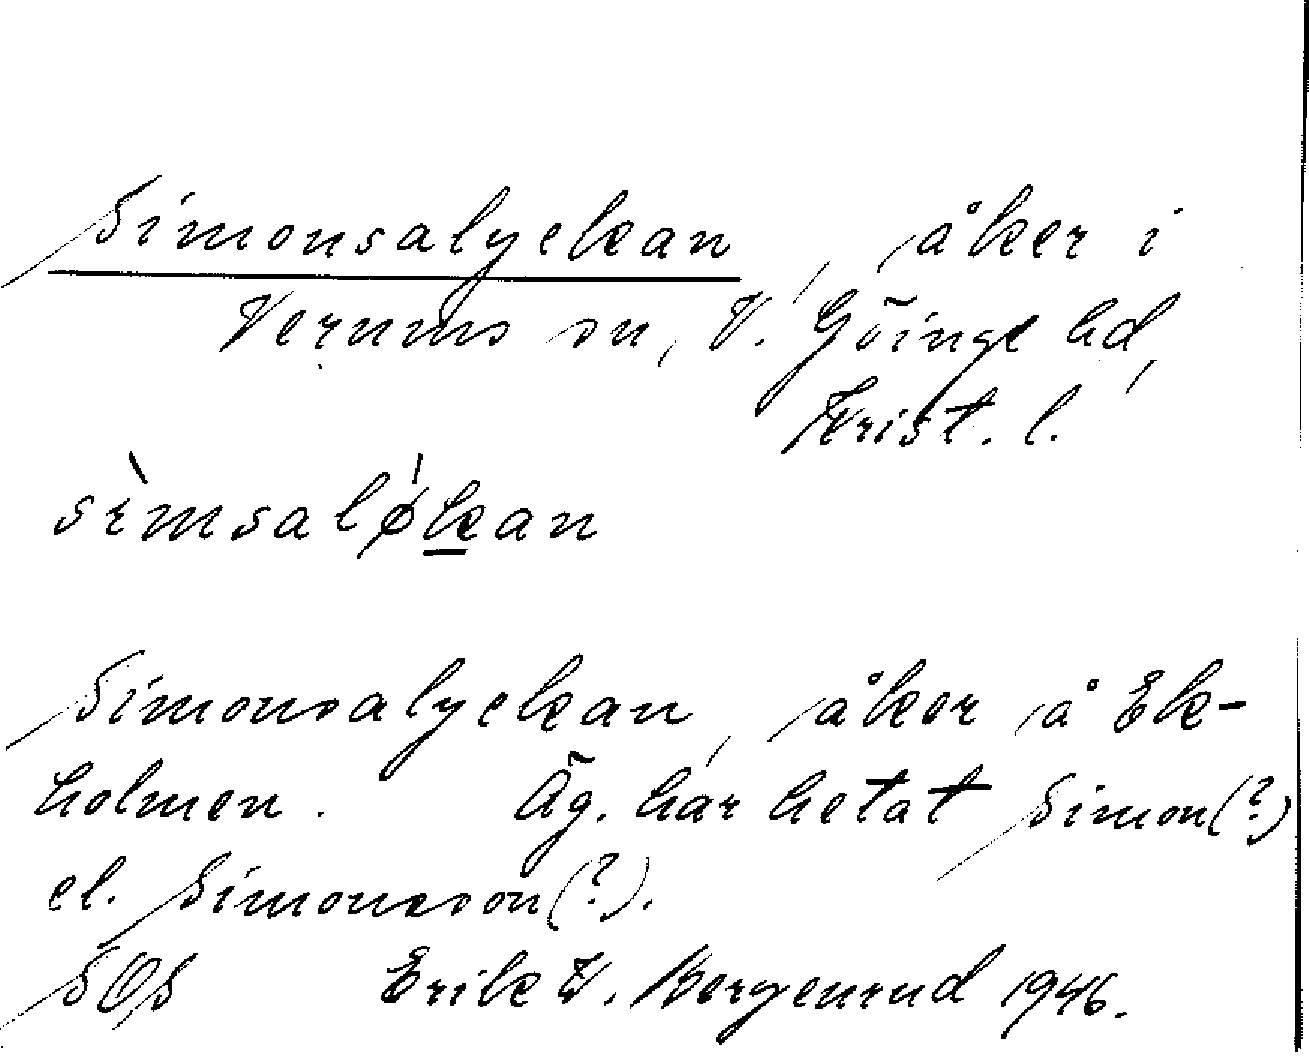 Simonsalyckan, åker i
Verums sn, V. Göinge hd,
Krist. l.
sìmsaløkan
Simonsalyckan, åker å Ek-
holmen. Äg. har hetat Simon(?)
el. Simonsson(?).
SOS Erik W. Bergenrud 1946.